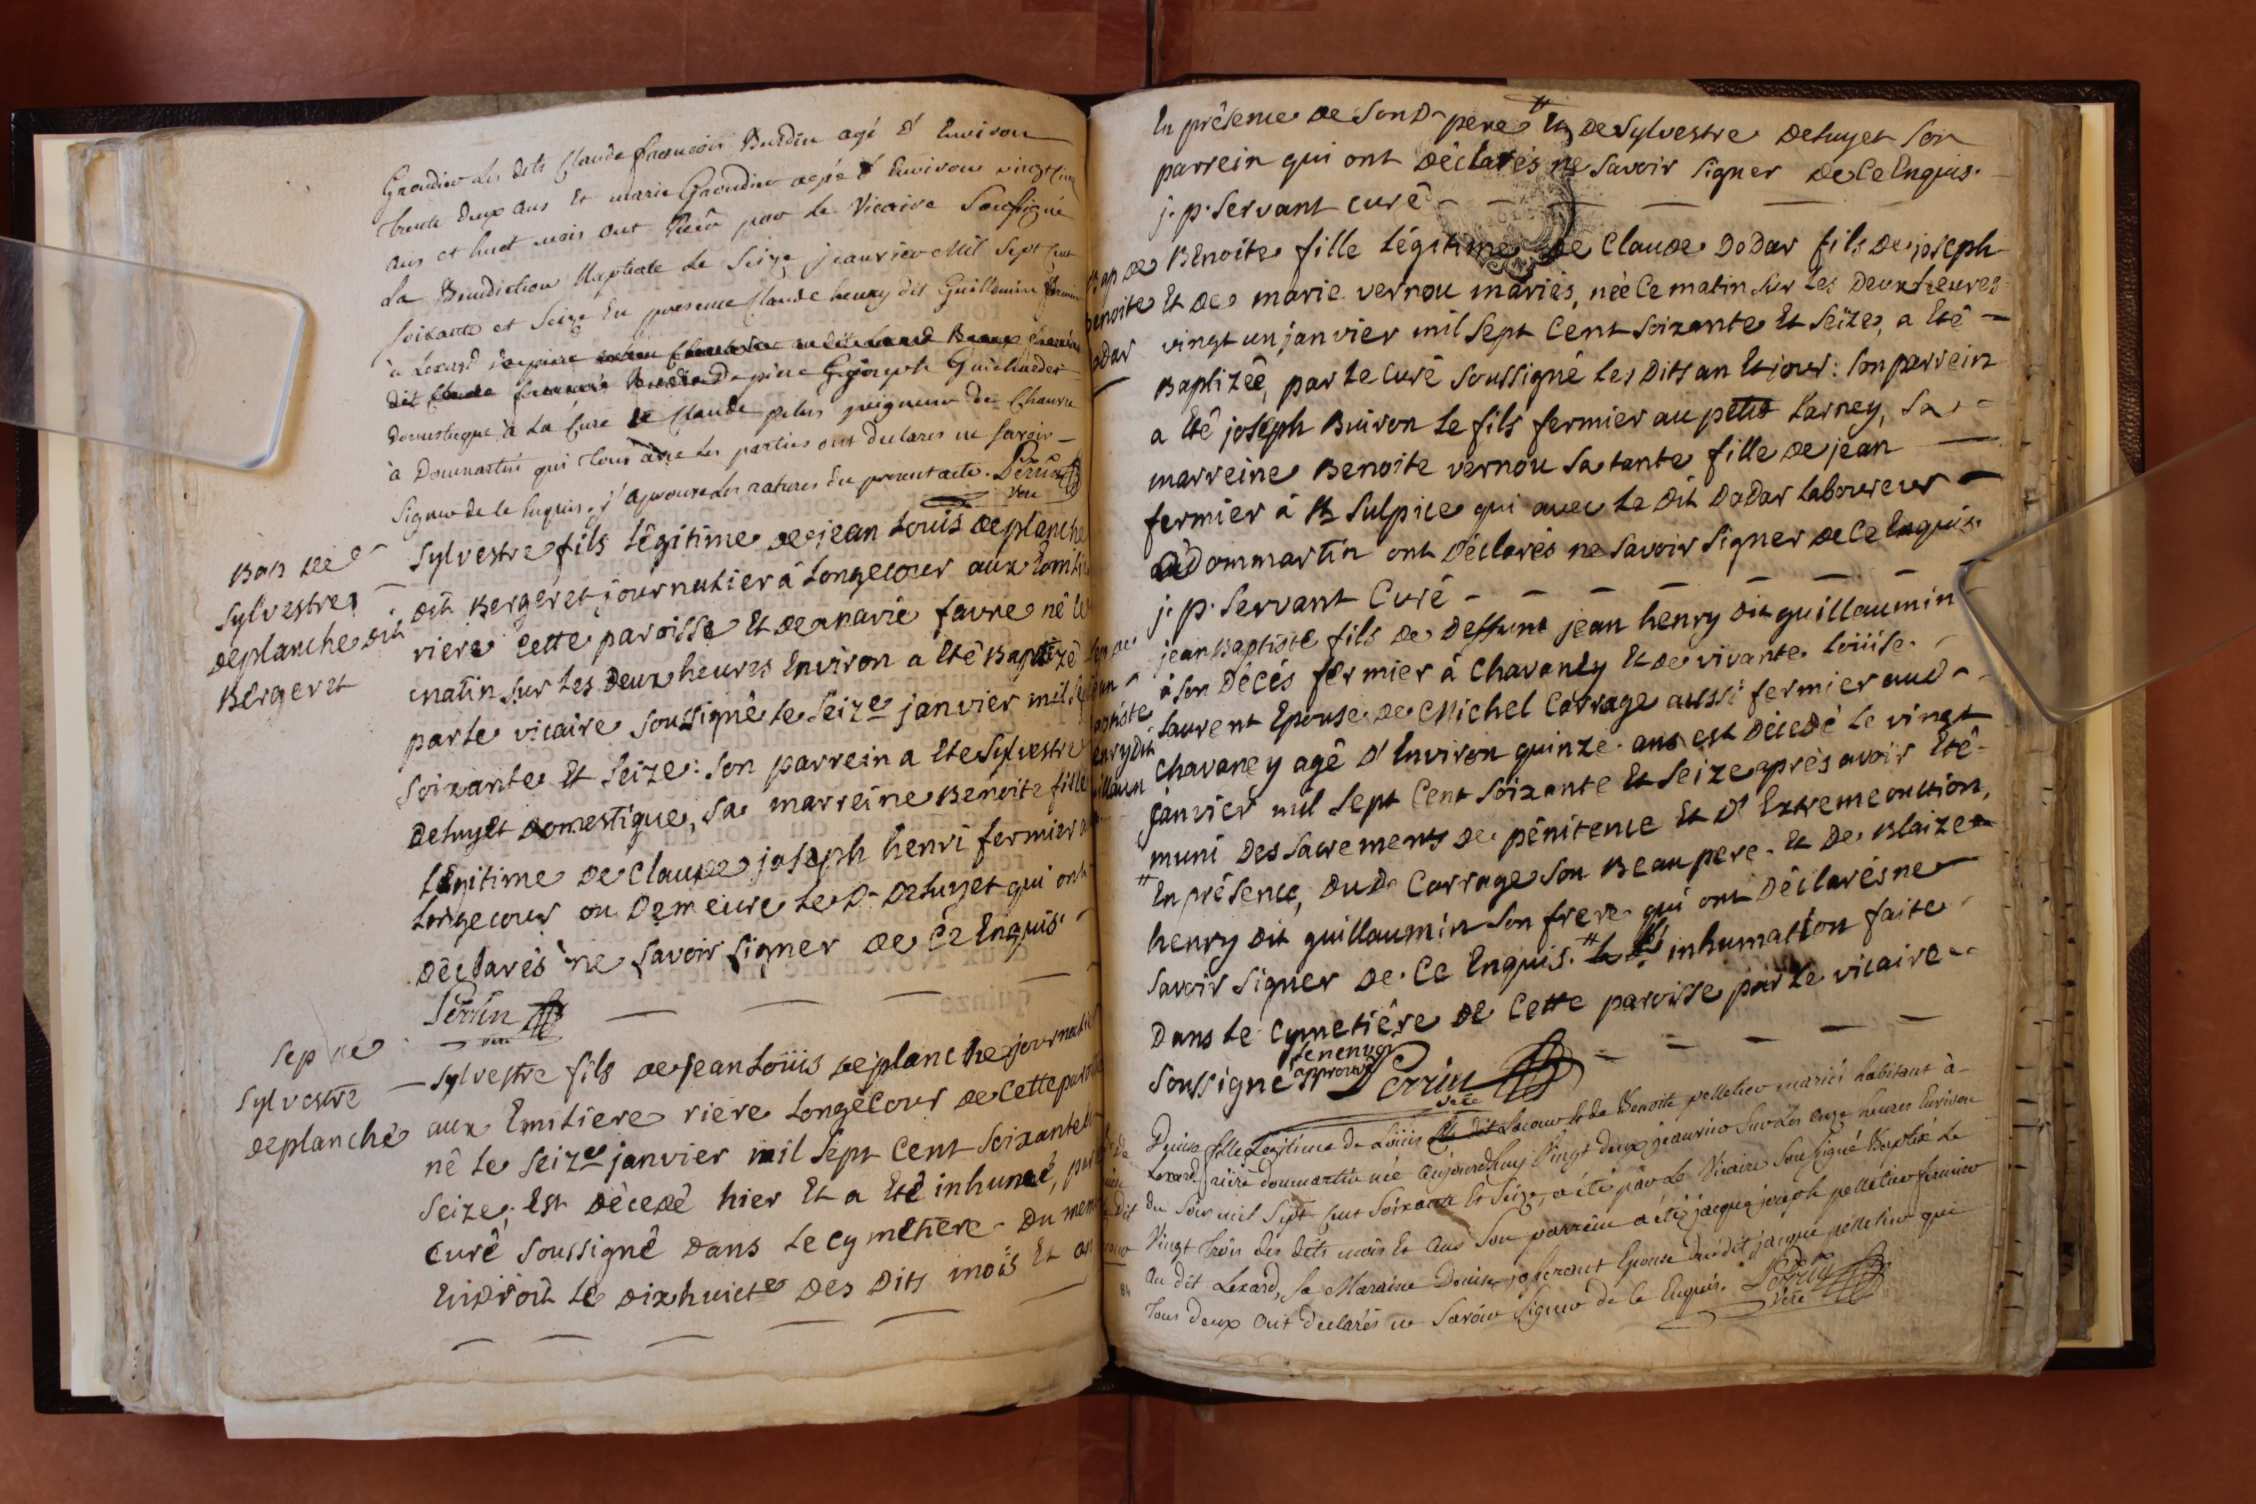 Grandin les dits Claude francois Burdin agé d'Environ
trente deux ans Et marie Grandin agée d'Environ vingt cinq
ans et huit mois ont Reçu par le Vicaire Soussigné
La Bénédiction Nuptiale le Seize janvier Mil Sept Cent
soixante et Seize En presence Claude henry dit Guillemin
à Lexard
dit Claude francois Burdin joseph
Domestique à la Cure de Claude de Chavane
à Dommartin qui tous avec les parties ont declarés ne savoir
Signer de ce Enquis. j'approuve les ratures du present acte. Perrin
Vere
Bap de
Sylvestre
deplanche dit
Bergeret
Sylvestre fils légitime de jean Louis deplanche
dit Bergeret journalier à Longecour aux Emili
riere cette paroisse Et de marie favre né le
matin sur les deux heures Environ a Eté Baptizé
par le vicaire soussigné le Seize janvier mil
soixante Et Seize: son parrein a Eté Sylvestre
Deluyet domestique, sa marreine Benoite fille
légitime de Claude joseph henri fermier
longecour ou Demeure le Dt Deluyet qui ont
Déclarés ne savoir signer de Ce Enquis.
Perrin
vere
Sep de
Sylvestre
deplanche
Sylvestre fils de jean Loüis deplanche journalier
aux Emiliere riere Longecour de Cette paroi
né le seize janvier mil Sept Cent Soixante et
Seize, Est Décedé hier Et a Eté inhumé, par
Curé soussigné dans le cymetiere Du mem
Endroit le dixhuicte Des Dits mois Et an
En présence de Son Dt pere # Et de Sylvestre Deluyet Son
parrein qui ont Déclarés ne savoir signer de Ce Enquis.
j. p. Servant curé
Bap de
Benoite
Dodar
Benoite fille légitime de Claude Dodar fils de joseph
Et de marie vernou mariés, née Ce matin sur les Deux heures
vingt un janvier mil sept Cent soixante Et Seize, a Eté
Baptizée, par le curé soussigné les Dits an Et jour: son parrein
a Eté joseph Buiron le fils fermier au petit Larney, sa
marreine Benoite vernou sa tante fille de jean
fermier à St Sulpice qui avec le Dit Dodar laboureur
à Dommartin ont Déclarés ne savoir signer de Ce Enquis.
j. p. Servant Curé
Sep de
jean
baptiste
henry dit
guillaumin
jean Baptiste fils de Deffunt jean henry Dit guillaumin
à son Décés fermier à Chavaney Et de vivante Loüise
Laurent Epouse de Michel Carrage aussi fermier aud
Chavaney agé D'Environ quinze ans est Décedé le vingt
janvier mil sept Cent soixante Et Seize après avoir Eté
muni Des sacrements de pénitence Et D'Extreme onction,
# En présence, du Dt Carrage son Beau pere Et De Blaize
henry dit guillaumin son frere qui ont Déclarés ne
savoir signer de Ce Enquis. # inhumation faite
Dans le cymetiére de Cette paroisse par le vicaire
soussigné le renvoy
approuvé Perrin
vere
Denise fille Legitime de Loüis Et de Benoite pelletier mariés habitant à
Lexard riere dommartin née aujourdhuy Vingt deux janvier sur les onze heures Environ
du Soir mil Sept Cent Soixante Et Seize, a été par le Vicaire Soussigné Baptizé le
Vingt Trois des dits mois Et an Son parrein a été jacque joseph pelletier fermier
au dit Lexard, Sa Marraine Denise joferant Epouse du dit jacque pelletier qui
tous deux ont declarés ne Savoir Signer de Ce Enquis. Perrin
Vere